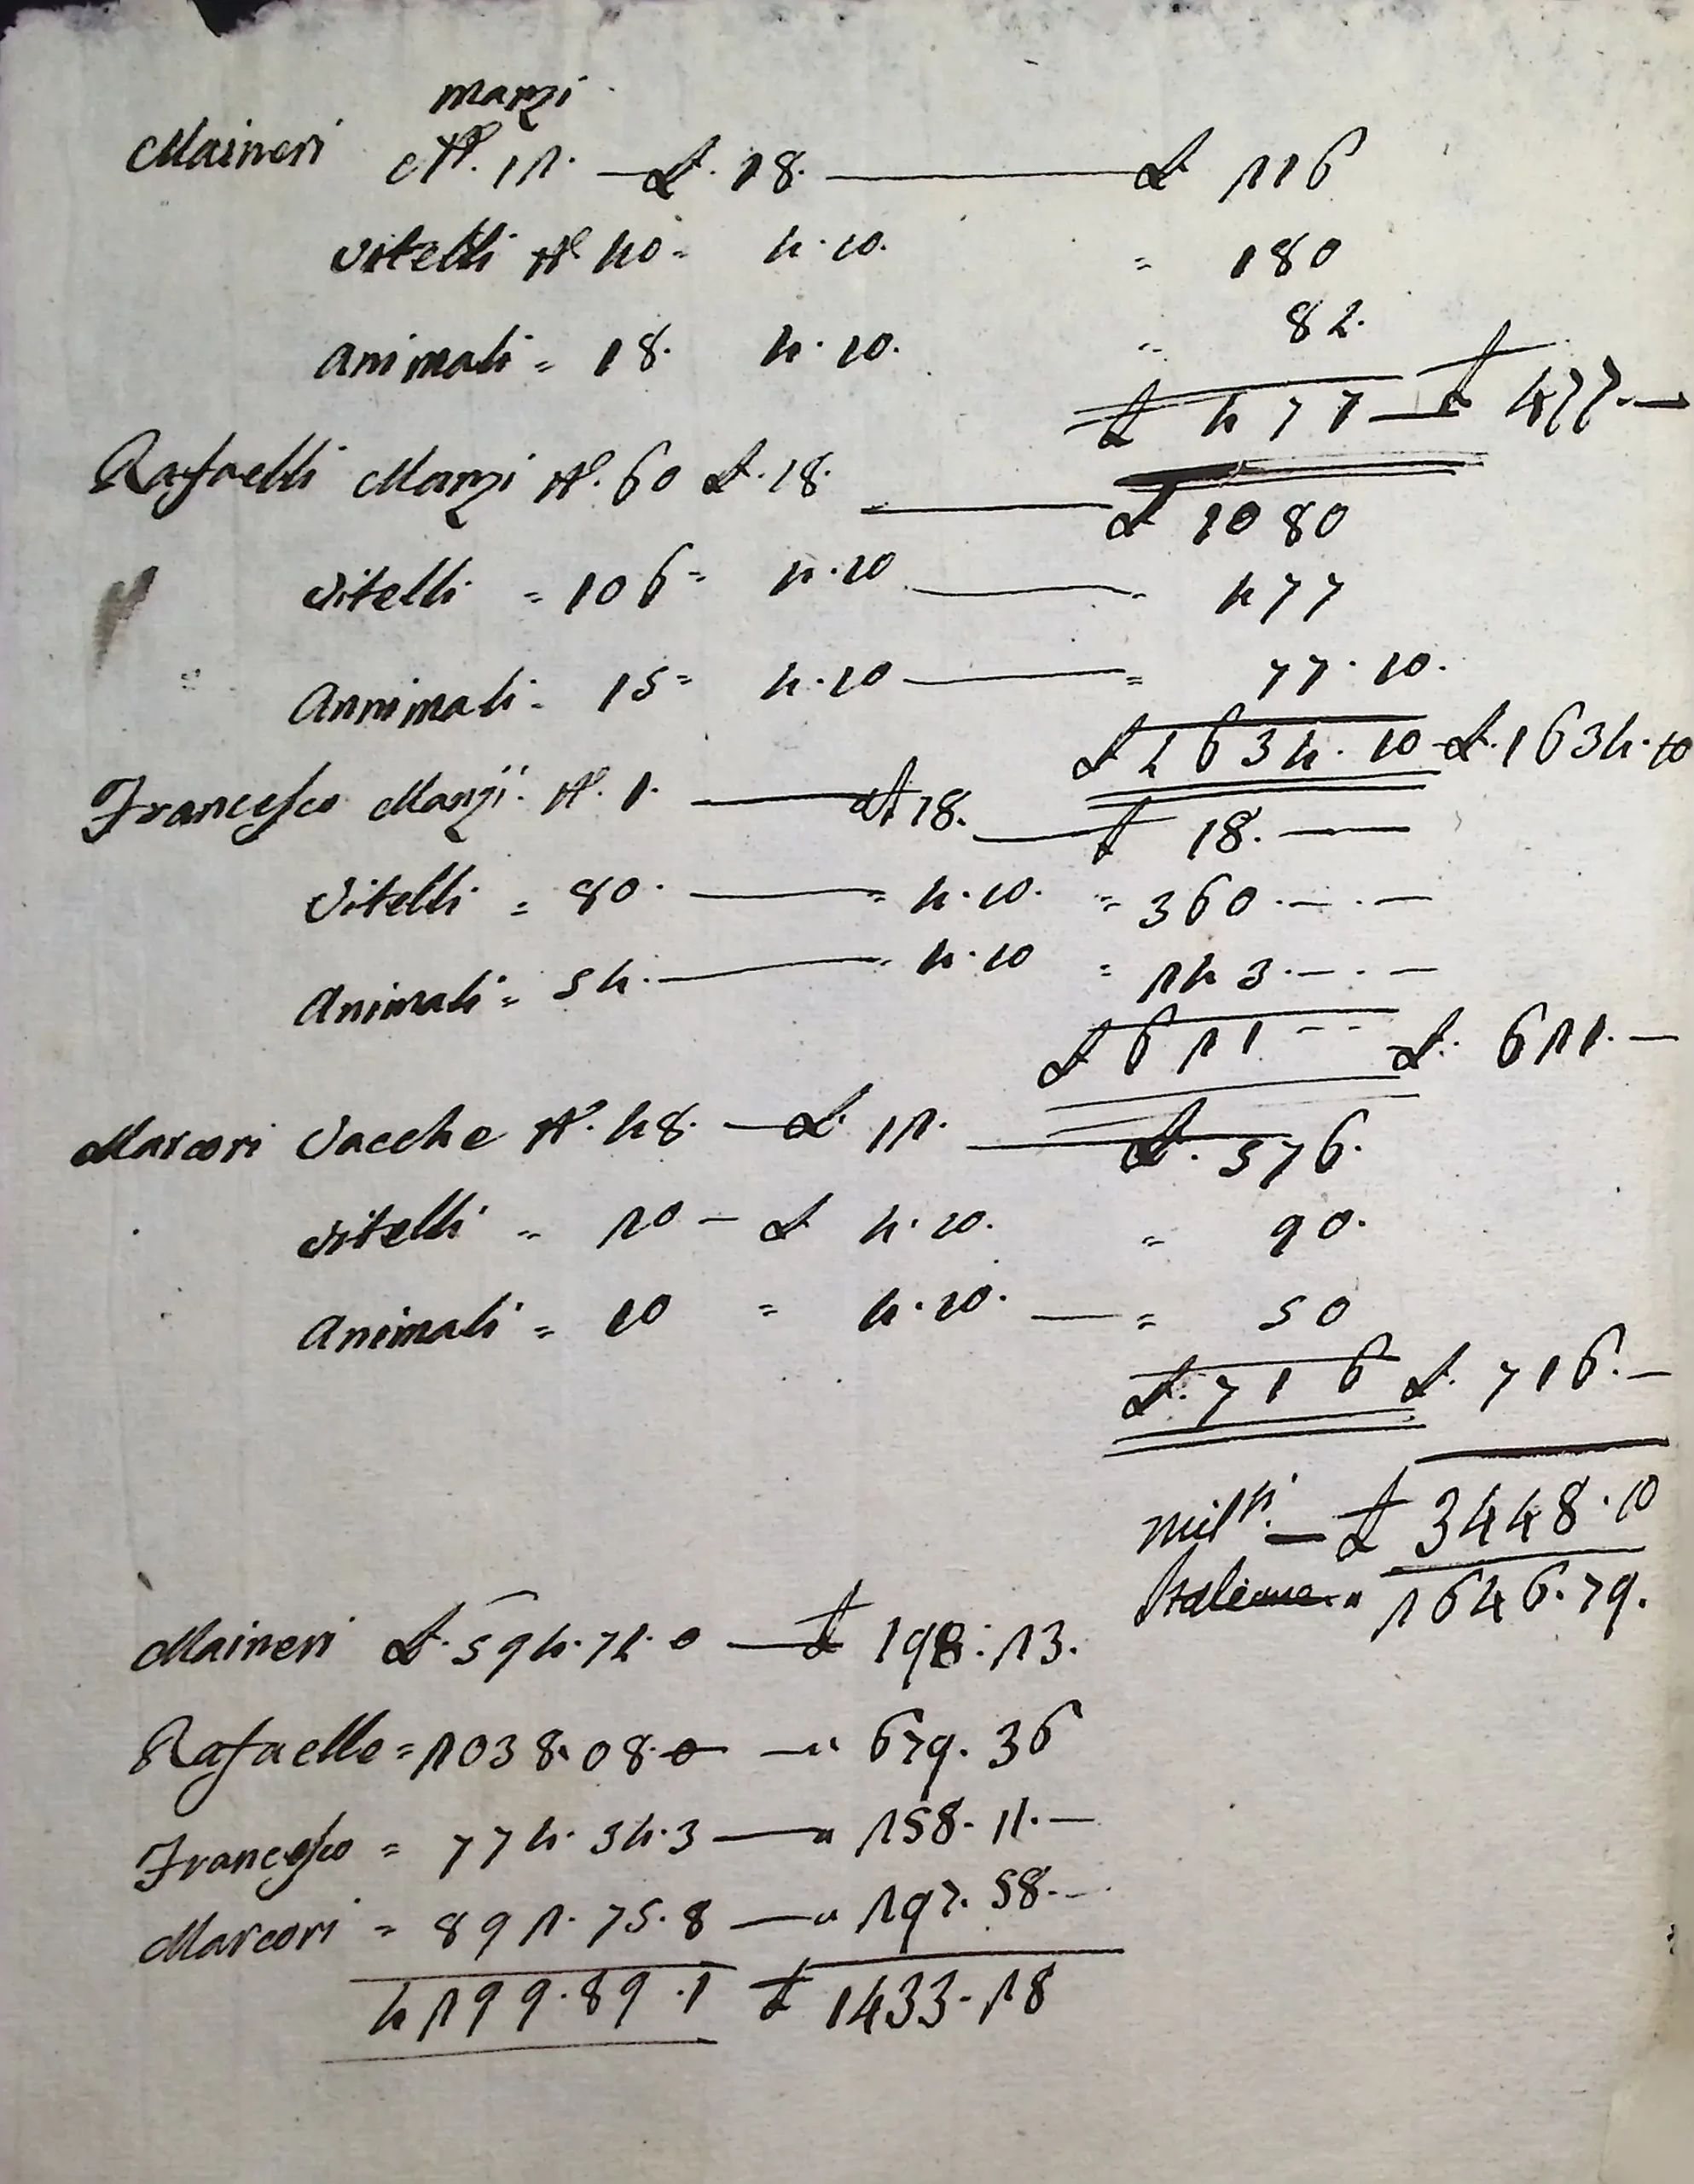 manzi
Maineri N. 12. — £. 18. — £ 216
vitelli N. 40 = 4.10. = 180
animali = 18. 4.10. = 81.
£ 477 — £ 477. —
Rafaelli Manzi N. 60 £. 18. — £ 1080
vitelli = 106 = 4.10 — = 477
Annimali = 15 = 4.10 — = 77.10.
£ 1634.10 £. 1634.10
Francesco Manzi N. 1. — £ 18. — £ 18. —
vitelli = 80. — = 4.10. = 360. — . —
Animali = 54. — = 4.10 = 243. — . —
£ 621 -- £. 621. —
Marcori vacche N. 48. — £. 12. — £. 576.
vitelli = 20 — £ 4.10. = 90.
Animali = 10 = 4.10. — = 50
£. 716 £. 716. —
mil.ⁱ — £ 3448.10
Italiane = 2646.79.
Maineri £. 594.71.0 — £ 198:23.
Rafaelle = 2038.08.0 — = 679.36
Francesco = 774.34.3 — = 258.11. —
Marcori = 892.75.8 — = 297.58. —
4299.89.1 £ 1433.28